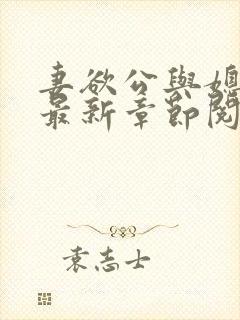 妻欲公與媳
最新章節閱
袁志士